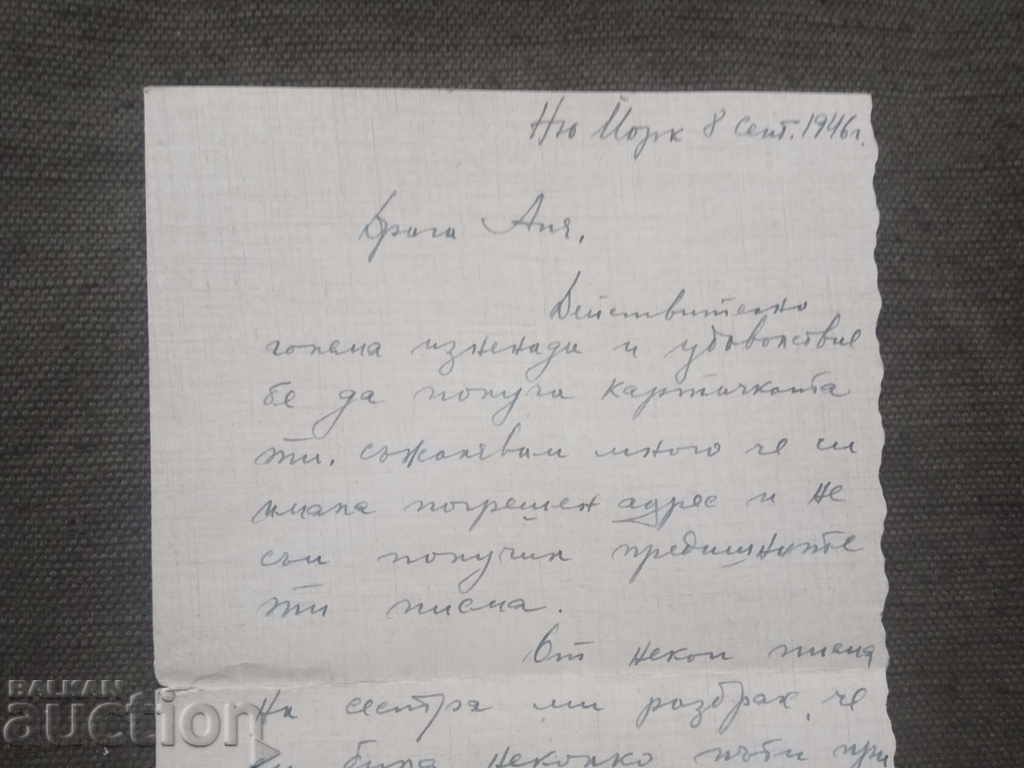 Ню Йорк 8 септ. 1946 г.
Драга Аня,
Действително
голема изненада и удоволствие
бе да получа картичката
ти. Съжалявам много че си
имала погрешен адрес и не
съм получил предишните
ти писма.
От некои писма
на сестра ми разбрах, че
си била неколко пъти при
BALKAN
auction